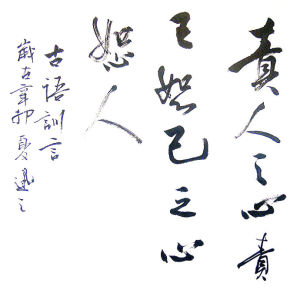 责人之心责
己恕己之心
恕人
古语训言
岁在辛卯夏逸之